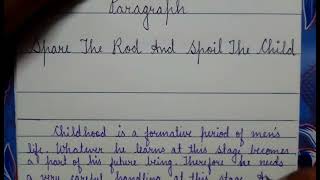 Paragraph
Spare The Rod And Spoil The Child
Childhood is a formative period of men's
life. Whatever he learns at this stage becomes
a part of his future being. Therefore he needs
a very careful handling at this stage.